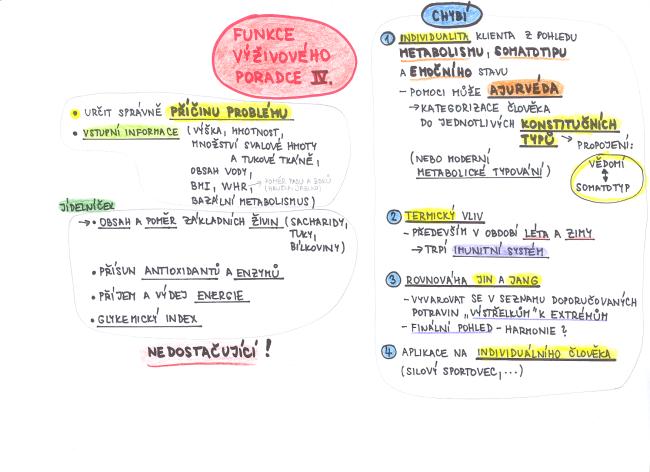 FUNKCE
VÝŽIVOVÉHO
PORADCE IV.
• URČIT SPRÁVNĚ PŘÍČINU PROBLÉMU
• VSTUPNÍ INFORMACE (VÝŠKA, HMOTNOST,
MNOŽSTVÍ SVALOVÉ HMOTY
A TUKOVÉ TKÁNĚ,
OBSAH VODY,
BMI, WHR, → POMĚR PASU A BOKŮ
(HRUŠKA, JABLKO)
BAZÁLNÍ METABOLISMUS)
JÍDELNÍČEK
→ • OBSAH A POMĚR ZÁKLADNÍCH ŽIVIN (SACHARIDY,
TUKY,
BÍLKOVINY)
• PŘÍSUN ANTIOXIDANTŮ A ENZYMŮ
• PŘÍJEM A VÝDEJ ENERGIE
• GLYKEMICKÝ INDEX
NEDOSTAČUJÍCÍ!
CHYBÍ
1 INDIVIDUALITA KLIENTA Z POHLEDU
METABOLISMU, SOMATOTYPU
A EMOČNÍHO STAVU
- POMOCI MŮŽE AJURVÉDA
→ KATEGORIZACE ČLOVĚKA
DO JEDNOTLIVÝCH KONSTITUČNÍCH
TYPŮ → PROPOJENÍ:
(NEBO MODERNÍ
METABOLICKÉ TYPOVÁNÍ)
VĚDOMÍ
↕
SOMATOTYP
2 TERMICKÝ VLIV
- PŘEDEVŠÍM V OBDOBÍ LÉTA A ZIMY
→ TRPÍ IMUNITNÍ SYSTÉM
3 ROVNOVÁHA JIN A JANG
- VYVAROVAT SE V SEZNAMU DOPORUČOVANÝCH
POTRAVIN „VÝSTŘELKŮM" K EXTRÉMŮM
- FINÁLNÍ POHLED - HARMONIE?
4 APLIKACE NA INDIVIDUÁLNÍHO ČLOVĚKA
(SILOVÝ SPORTOVEC,...)